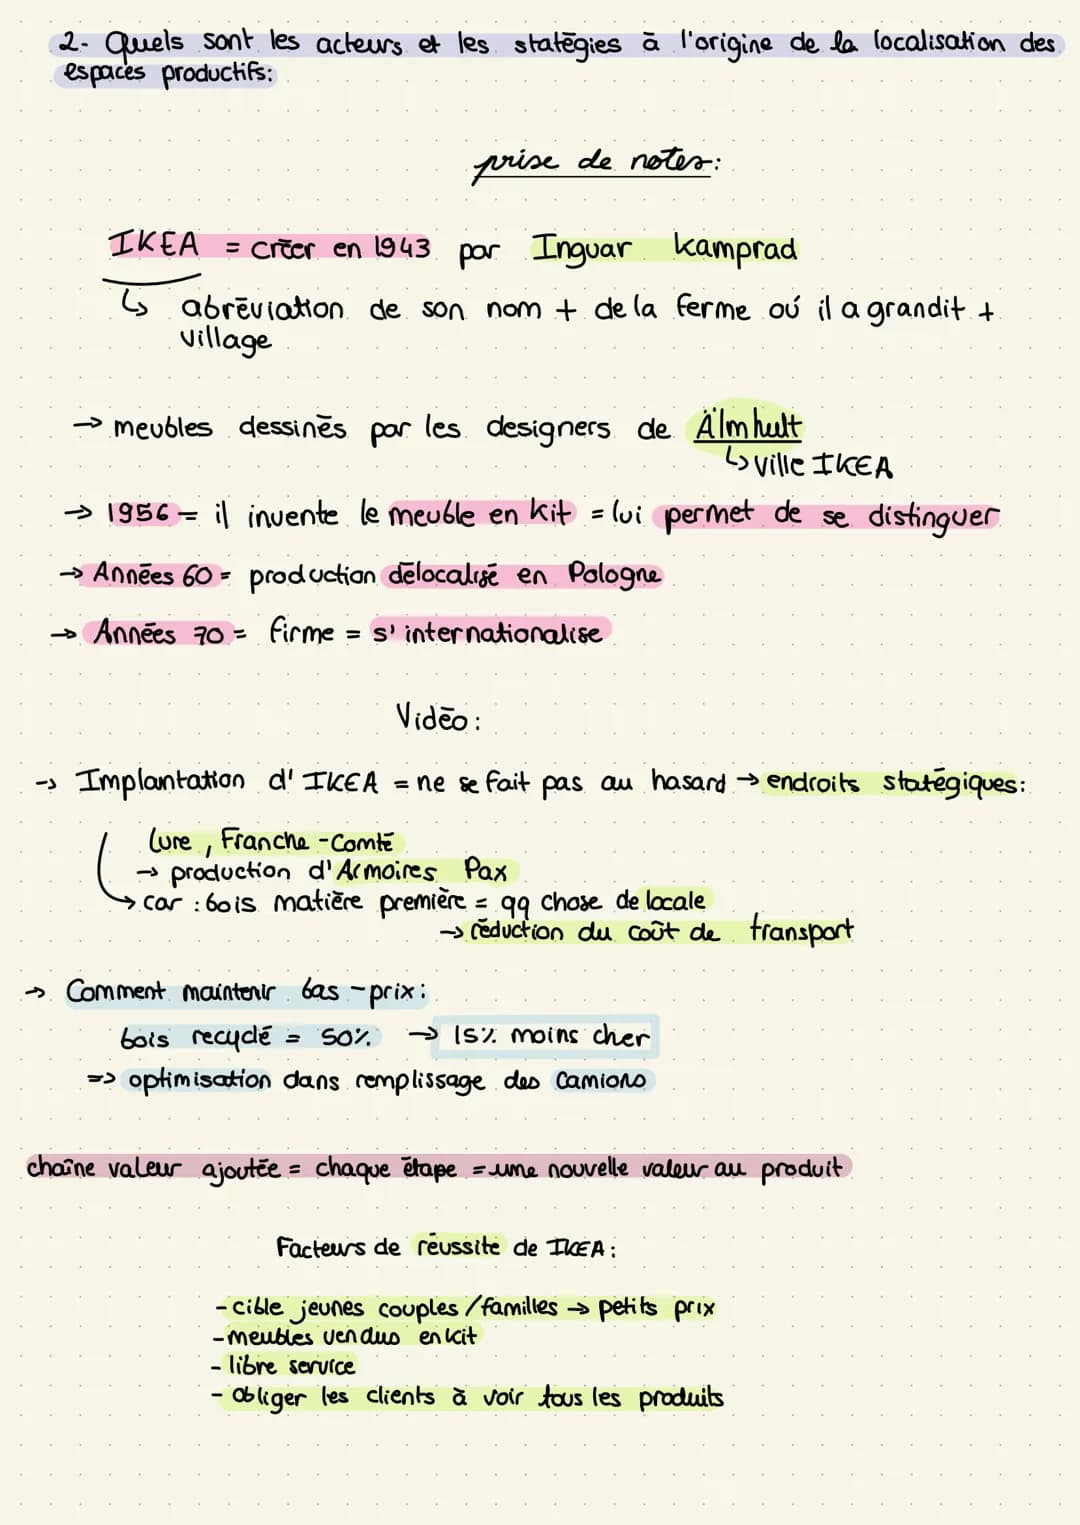 2- Quels sont les acteurs et les statégies à l'origine de la localisation des
espaces productifs:
prise de notes:
IKEA = créer en 1943 par Inguar kamprad
↳ abréviation de son nom + de la ferme où il a grandit +
village
→ meubles dessinés par les designers de Älmhult
↳ ville IKEA
→ 1956 = il invente le meuble en kit = lui permet de se distinguer
→ Années 60 = production délocalisé en Pologne
→ Années 70 = firme = s'internationalise
Vidéo:
→ Implantation d'IKEA = ne se fait pas au hasard → endroits statégiques:
Lure, Franche-Comté
→ production d'Armoires Pax
→ car : bois matière première = qq chose de locale
→ réduction du coût de transport
→ Comment maintenir bas-prix:
bois recyclé = 50% → 15% moins cher
=> optimisation dans remplissage des camions
chaîne valeur ajoutée = chaque étape = une nouvelle valeur au produit
Facteurs de réussite de IKEA:
- cible jeunes couples/familles → petits prix
- meubles vendus en kit
- libre service
- Obliger les clients à voir tous les produits